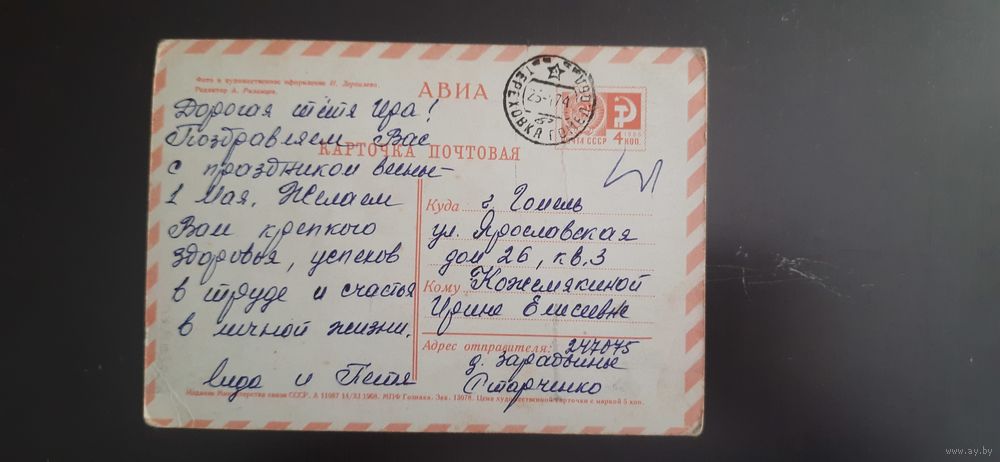 Фото и художественное оформление И. Дергилева
Редактор А. Рязанцев
АВИА
КАРТОЧКА ПОЧТОВАЯ
Дорогая тётя Ира!
Поздравляем Вас
с праздником весны –
1 Мая. Желаем
Вам крепкого
здоровья, успехов
в труде и счастья
в личной жизни.
Лида и Петя
ТЕРЕХОВКА ГОМЕЛ. ОБЛ.
ПОЧТА СССР 4 КОП.
1966
Куда г. Гомель
ул. Ярославская
дом 26, кв. 3
Кому Кожемякиной
Ирине Елисеевне
Адрес отправителя: 247075
д. Зарадынье
Старченко
Издание Министерства связи СССР. А 11087 14/XI 1968. МПФ Гознака. Зак. 13078. Цена художественной карточки с маркой 5 коп.
www.ay.by